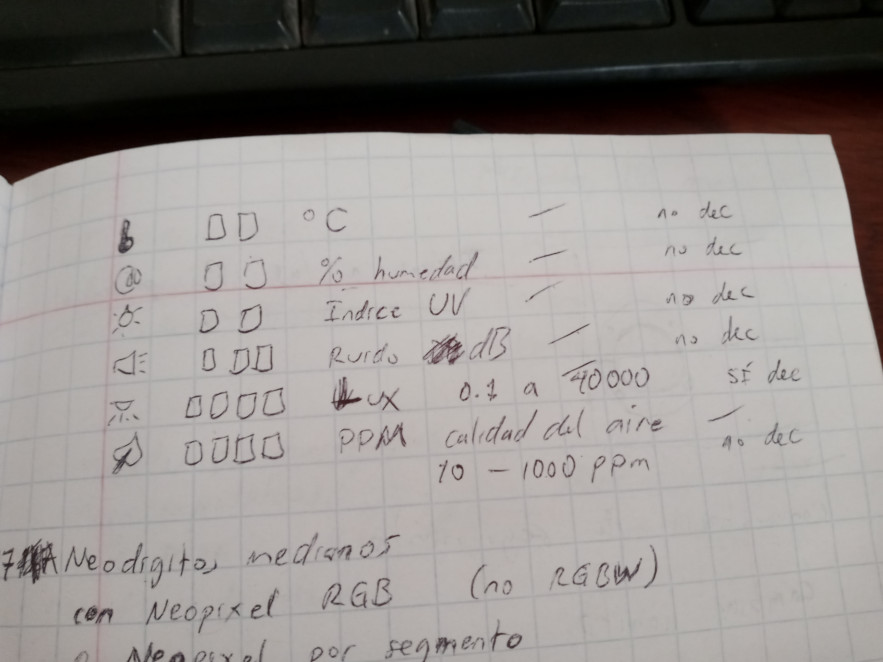 °C — no dec
% humedad — no dec
Indice UV — no dec
Ruido dB — no dec
Lux 0.1 a 40000 sí dec
PPM calidad del aire — no dec
10 - 1000 ppm
Neodigitos medianos
con Neopixel RGB (no RGBW)
Neopixel por segmento